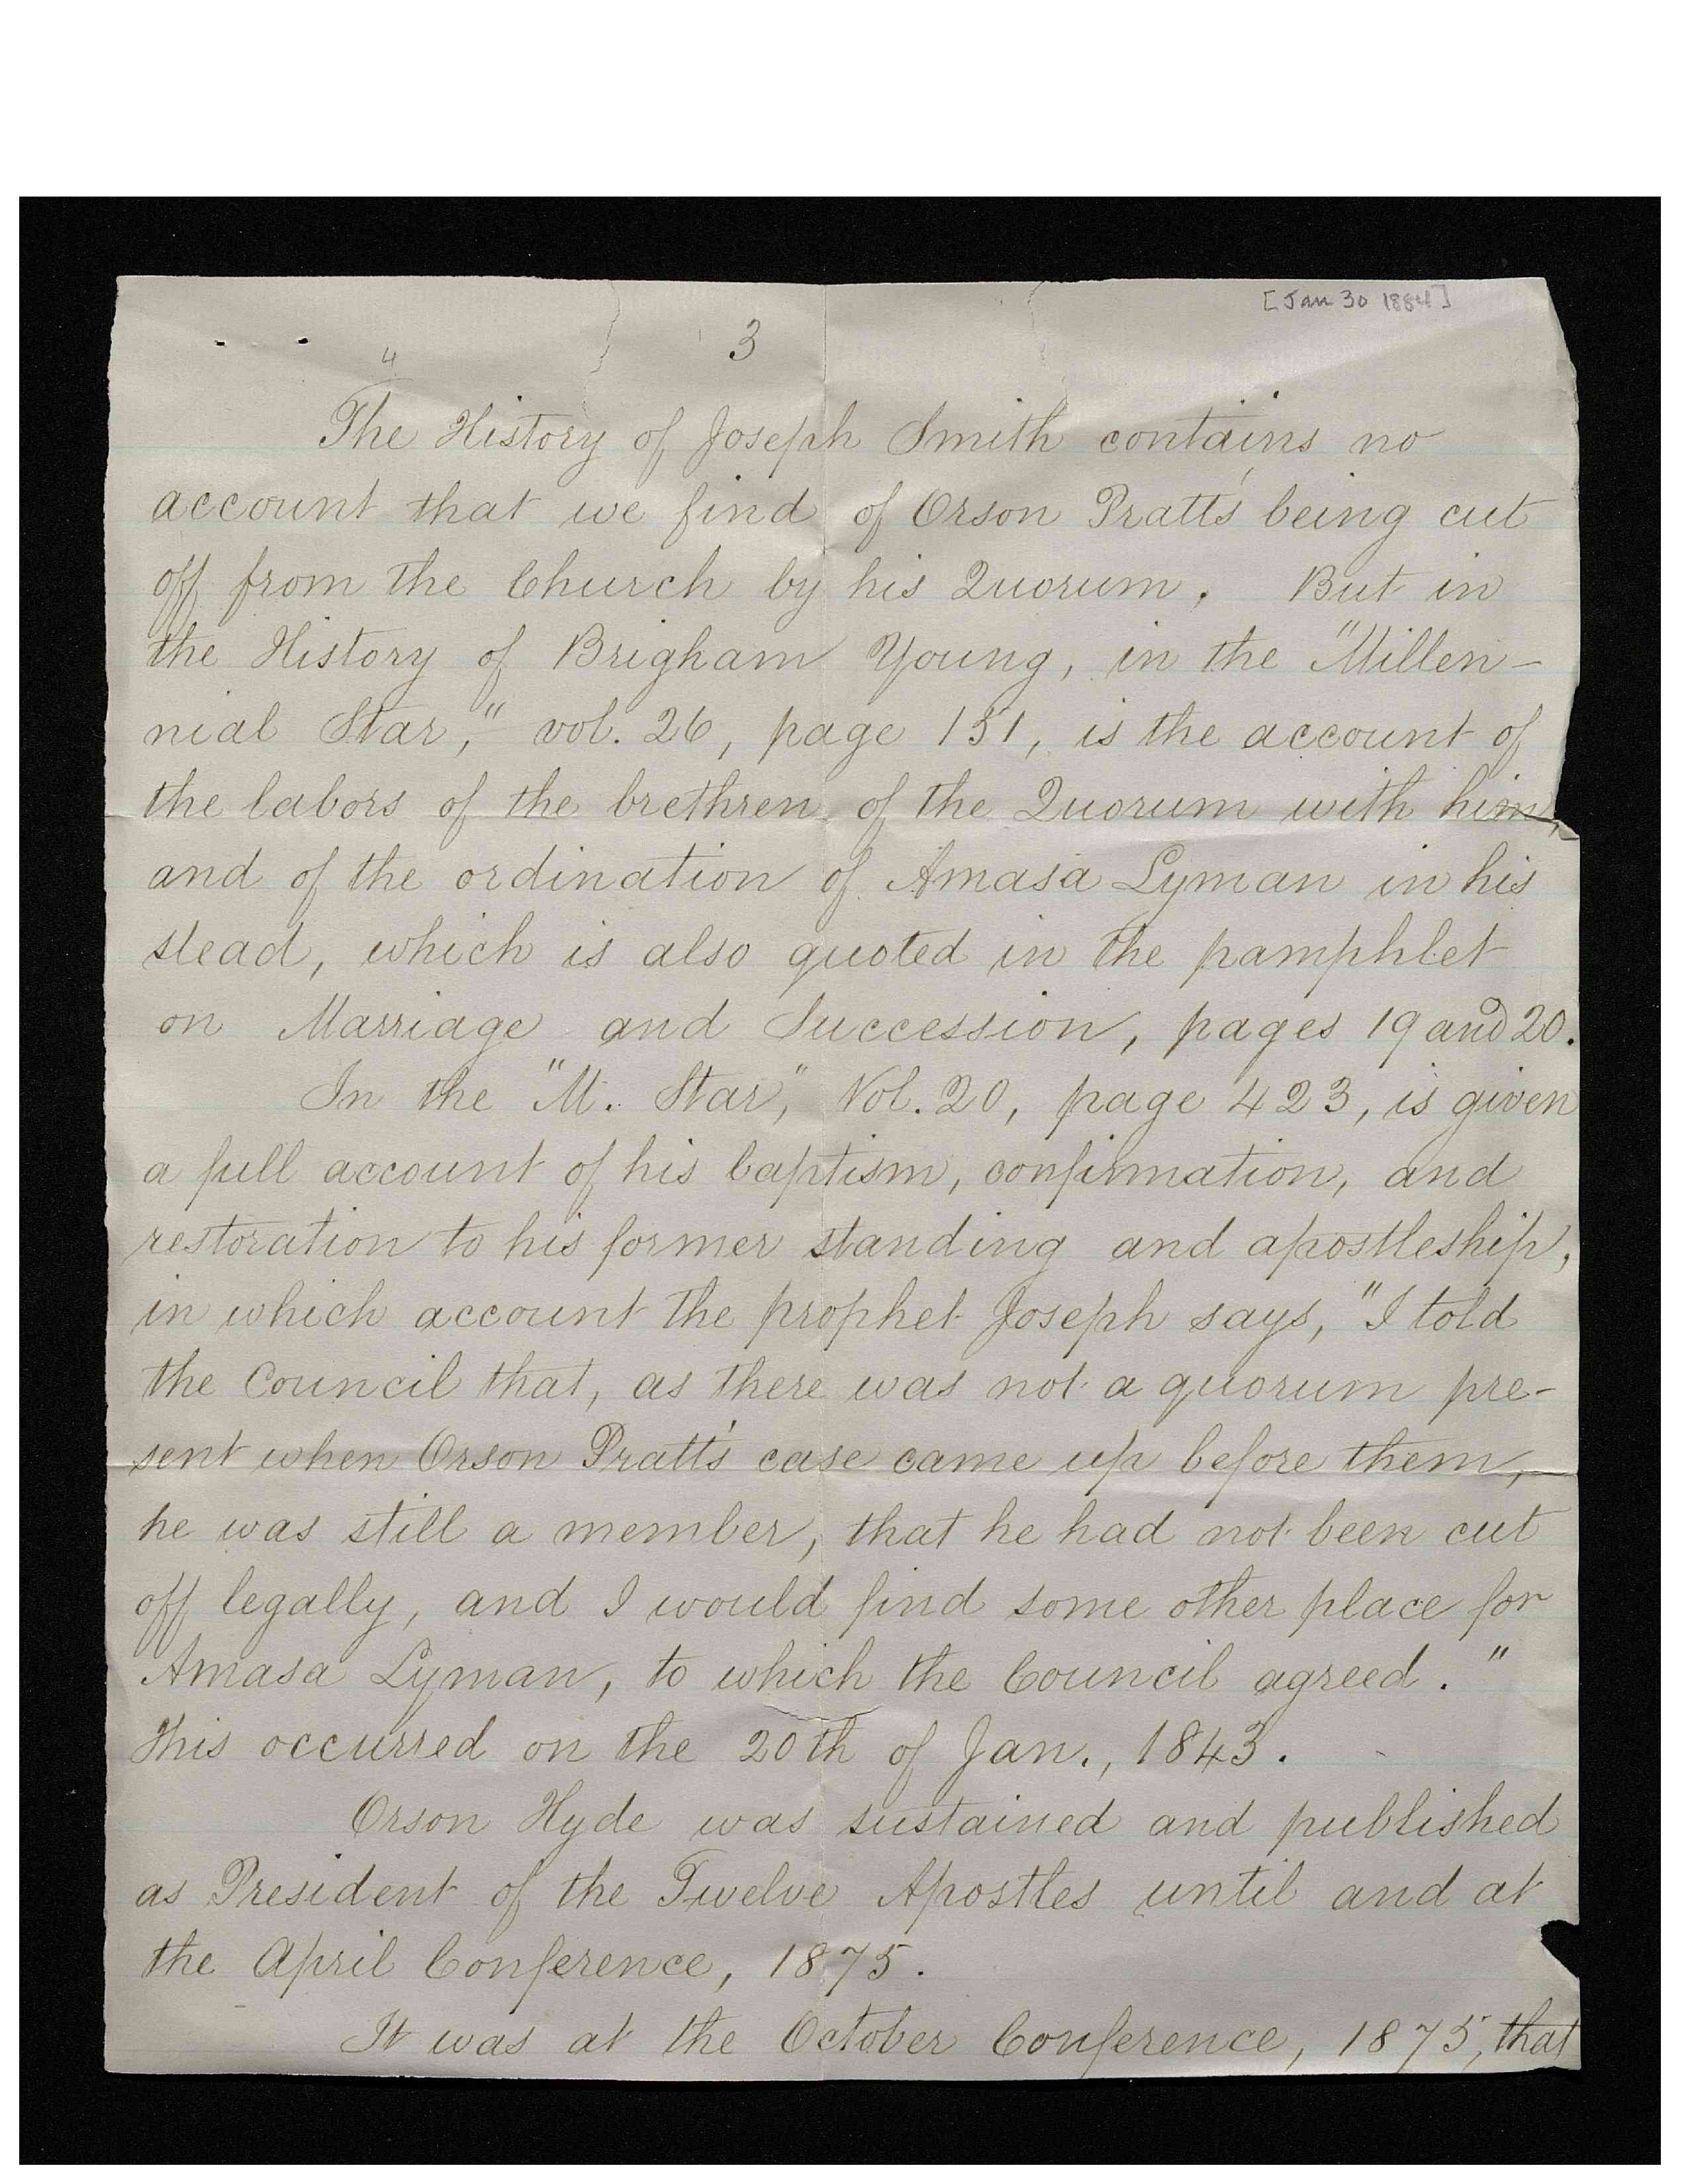 [Jan 30 1884]
3
4
The History of Joseph Smith contains no
account that we find of Orson Pratt's being cut
off from the Church by his Quorum. But in
the History of Brigham Young, in the "Millen-
nial Star," vol. 26, page 151, is the account of
the labors of the brethren of the Quorum with him,
and of the ordination of Amasa Lyman in his
stead, which is also quoted in the pamphlet
on Marriage and Succession, pages 19 and 20.
In the "M. Star," Vol. 20, page 423, is given
a full account of his baptism, confirmation, and
restoration to his former standing and apostleship,
in which account the prophet Joseph says, "I told
the Council that, as there was not a quorum pre-
sent when Orson Pratt's case came up before them,
he was still a member, that he had not been cut
off legally, and I would find some other place for
Amasa Lyman, to which the Council agreed."
This occurred on the 20th of Jan., 1843.
Orson Hyde was sustained and published
as President of the Twelve Apostles until and at
the April Conference, 1875.
It was at the October Conference, 1875, that